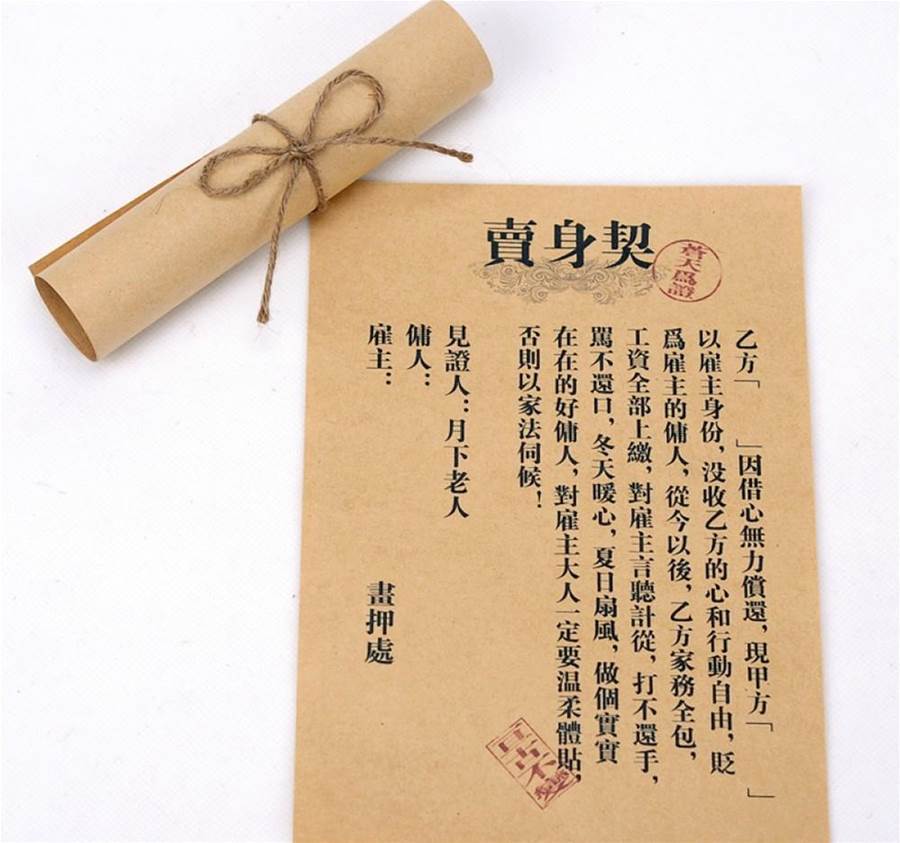 賣身契
蒼天爲證
乙方「　　」因借心無力償還，現甲方「　　」
以雇主身份，没收乙方的心和行動自由，貶
爲雇主的傭人，從今以後，乙方家務全包，
工資全部上繳，對雇主言聽計從，打不還手，
駡不還口，冬天暖心，夏日扇風，做個實實
在在的好傭人，對雇主大人一定要温柔體貼，
否則以家法伺候！
見證人：月下老人
傭人：
雇主：
畫押處
亘古不變